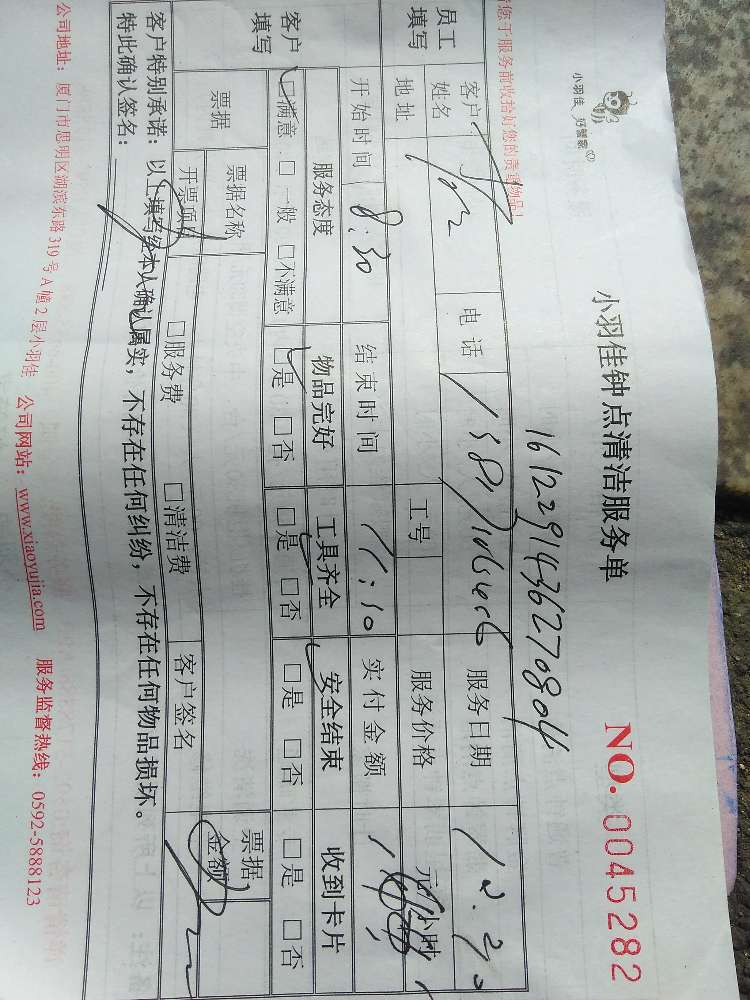 小羽佳 好管家®
小羽佳钟点清洁服务单
NO. 0045282
1612291436270804
您于服务前收拾好您的贵重物品!
员工填写 客户姓名 电话 服务日期 12.30
地址 工号 服务价格 元/小时
开始时间 8:30 结束时间 11:30 实付金额
客户填写 服务态度 物品完好 工具齐全 安全结束 收到卡片
□满意 □一般 □不满意 □是 □否 □是 □否 □是 □否 □是 □否
票据 票据名称 票据金额
开票项目 □服务费 □清洁费 客户签名
客户特别承诺:以上填写经本人确认属实,不存在任何纠纷,不存在任何物品损坏。
特此确认签名:
公司地址:厦门市思明区湖滨东路319号A幢2层小羽佳 公司网站:www.xiaoyujia.com 服务监督热线:0592-5888123